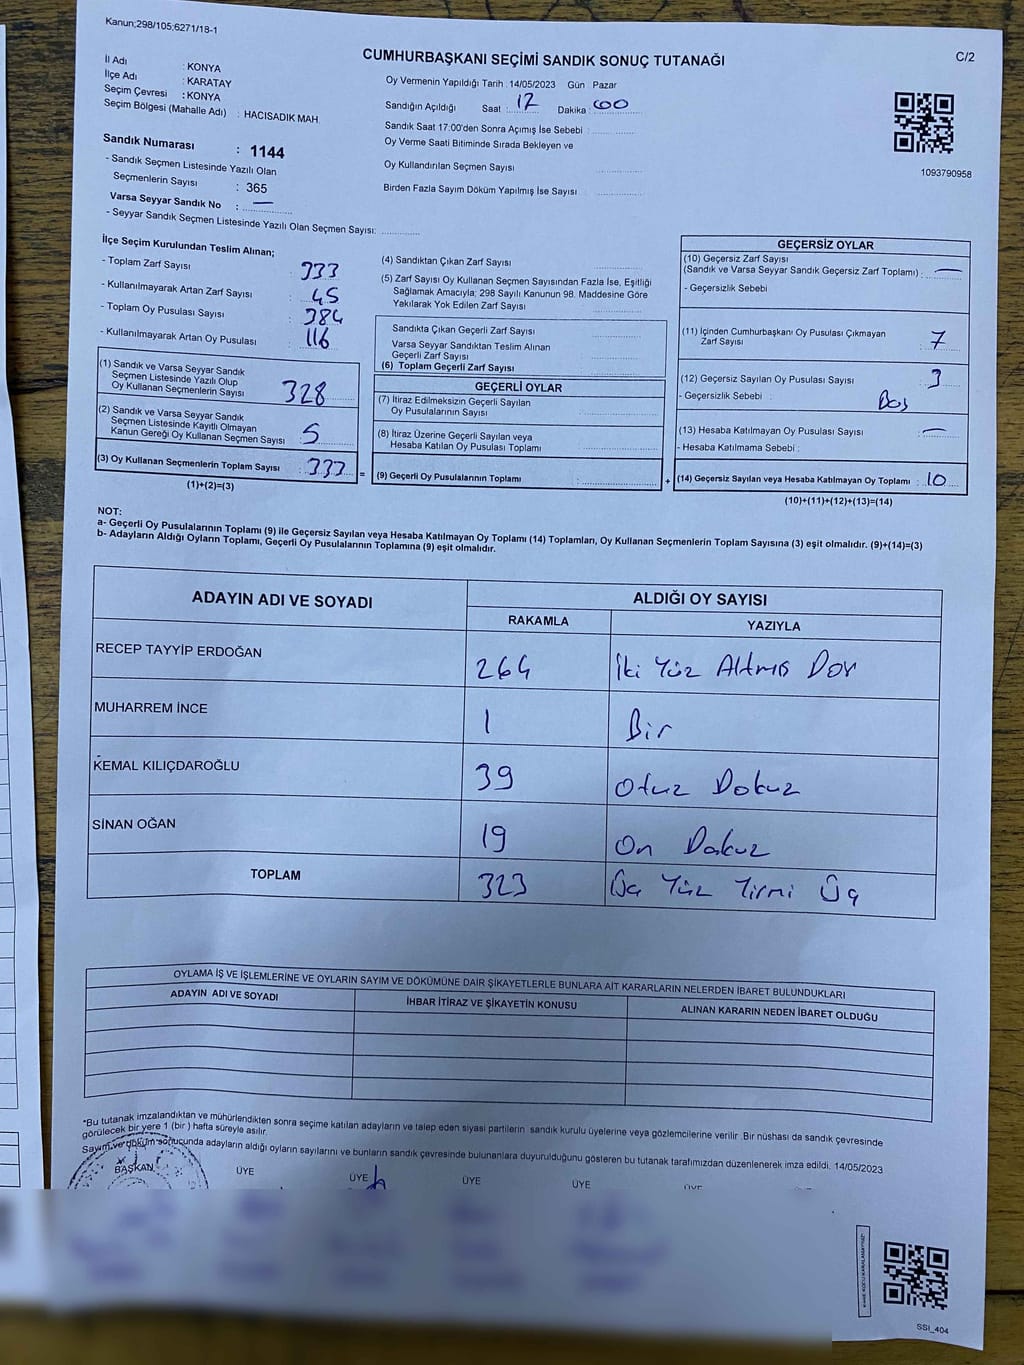 Kanun;298/105;6271/18-1
C/2
CUMHURBAŞKANI SEÇİMİ SANDIK SONUÇ TUTANAĞI
İl Adı : KONYA
İlçe Adı : KARATAY
Seçim Çevresi : KONYA
Seçim Bölgesi (Mahalle Adı) : HACISADIK MAH.
Oy Vermenin Yapıldığı Tarih : 14/05/2023 Gün Pazar
Sandığın Açıldığı Saat : 17 Dakika : 00
Sandık Saat 17:00'den Sonra Açımış İse Sebebi :
Oy Verme Saati Bitiminde Sırada Bekleyen ve
Oy Kullandırılan Seçmen Sayısı
Birden Fazla Sayım Döküm Yapılmış İse Sayısı
1093790958
Sandık Numarası : 1144
- Sandık Seçmen Listesinde Yazılı Olan
Seçmenlerin Sayısı : 365
Varsa Seyyar Sandık No : —
- Seyyar Sandık Seçmen Listesinde Yazılı Olan Seçmen Sayısı:
İlçe Seçim Kurulundan Teslim Alınan;
- Toplam Zarf Sayısı
- Kullanılmayarak Artan Zarf Sayısı : 45
- Toplam Oy Pusulası Sayısı : 384
- Kullanılmayarak Artan Oy Pusulası : 116
(1) Sandık ve Varsa Seyyar Sandık
Seçmen Listesinde Yazılı Olup
Oy Kullanan Seçmenlerin Sayısı : 328
(2) Sandık ve Varsa Seyyar Sandık
Seçmen Listesinde Kayıtlı Olmayan
Kanun Gereği Oy Kullanan Seçmen Sayısı : 5
(3) Oy Kullanan Seçmenlerin Toplam Sayısı : 333
(1)+(2)=(3)
(4) Sandıktan Çıkan Zarf Sayısı
(5) Zarf Sayısı Oy Kullanan Seçmen Sayısından Fazla İse, Eşitliği
Sağlamak Amacıyla; 298 Sayılı Kanunun 98. Maddesine Göre
Yakılarak Yok Edilen Zarf Sayısı
Sandıkta Çıkan Geçerli Zarf Sayısı
Varsa Seyyar Sandıktan Teslim Alınan
Geçerli Zarf Sayısı
(6) Toplam Geçerli Zarf Sayısı
GEÇERLİ OYLAR
(7) İtiraz Edilmeksizin Geçerli Sayılan
Oy Pusulalarının Sayısı
(8) İtiraz Üzerine Geçerli Sayılan veya
Hesaba Katılan Oy Pusulası Toplamı
= (9) Geçerli Oy Pusulalarının Toplamı
GEÇERSİZ OYLAR
(10) Geçersiz Zarf Sayısı
(Sandık ve Varsa Seyyar Sandık Geçersiz Zarf Toplamı) : —
- Geçersizlik Sebebi
(11) İçinden Cumhurbaşkanı Oy Pusulası Çıkmayan
Zarf Sayısı : 7
(12) Geçersiz Sayılan Oy Pusulası Sayısı : 3
- Geçersizlik Sebebi : Boş
(13) Hesaba Katılmayan Oy Pusulası Sayısı : —
- Hesaba Katılmama Sebebi :
+ (14) Geçersiz Sayılan veya Hesaba Katılmayan Oy Toplamı : 10
(10)+(11)+(12)+(13)=(14)
NOT:
a- Geçerli Oy Pusulalarının Toplamı (9) ile Geçersiz Sayılan veya Hesaba Katılmayan Oy Toplamı (14) Toplamları, Oy Kullanan Seçmenlerin Toplam Sayısına (3) eşit olmalıdır. (9)+(14)=(3)
b- Adayların Aldığı Oyların Toplamı, Geçerli Oy Pusulalarının Toplamına (9) eşit olmalıdır.
ADAYIN ADI VE SOYADI
ALDIĞI OY SAYISI
RAKAMLA YAZIYLA
RECEP TAYYİP ERDOĞAN 264 İki Yüz Altmış Dör
MUHARREM İNCE 1 Bir
KEMAL KILIÇDAROĞLU 39 Otuz Dokuz
SİNAN OĞAN 19 On Dokuz
TOPLAM 323 Üç Yüz Yirmi Üç
OYLAMA İŞ VE İŞLEMLERİNE VE OYLARIN SAYIM VE DÖKÜMÜNE DAİR ŞİKAYETLERLE BUNLARA AİT KARARLARIN NELERDEN İBARET BULUNDUKLARI
ADAYIN ADI VE SOYADI İHBAR İTİRAZ VE ŞİKAYETİN KONUSU ALINAN KARARIN NEDEN İBARET OLDUĞU
*Bu tutanak imzalandıktan ve mühürlendikten sonra seçime katılan adayların ve talep eden siyasi partilerin sandık kurulu üyelerine veya gözlemcilerine verilir. Bir nüshası da sandık çevresinde
görülecek bir yere 1 (bir) hafta süreyle asılır.
Sayım ve döküm sonucunda adayların aldığı oyların sayılarını ve bunların sandık çevresinde bulunanlara duyurulduğunu gösteren bu tutanak tarafımızdan düzenlenerek imza edildi. 14/05/2023
BAŞKAN ÜYE ÜYE ÜYE ÜYE ÜYE
SSI_404